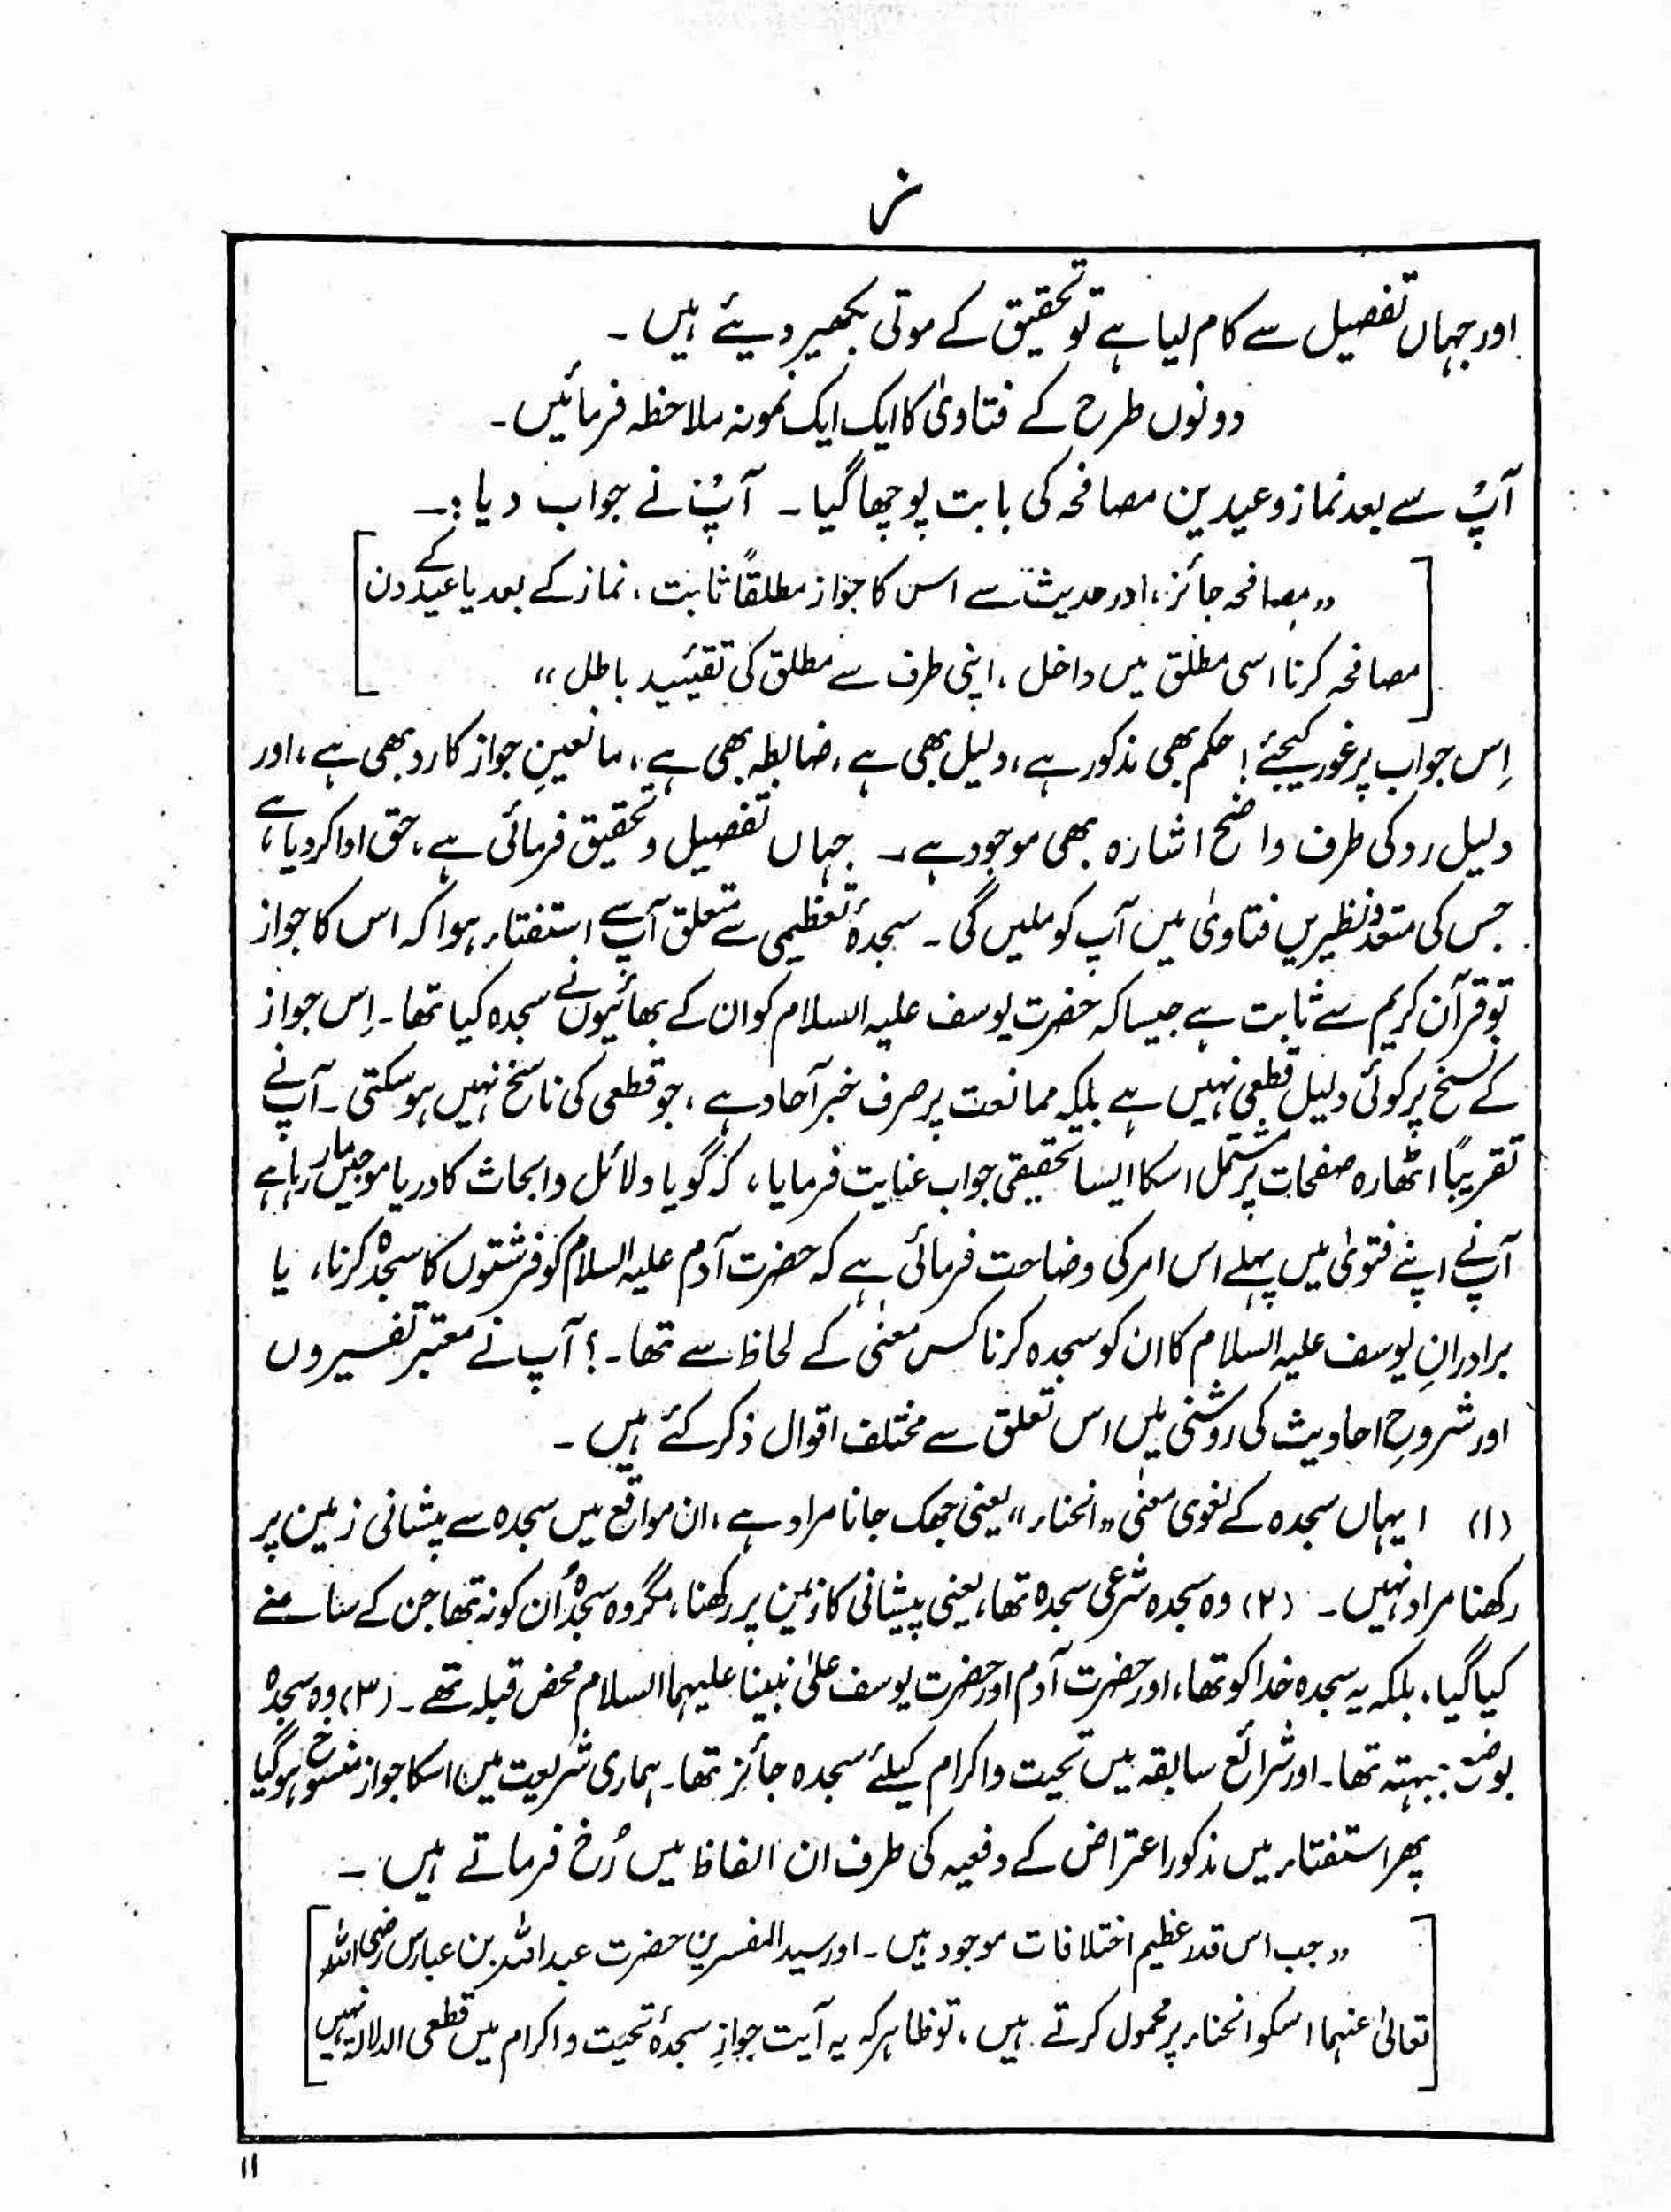 ز
اور جہاں تفصیل سے کام لیا ہے تو تحقیق کے موتی بکھیر دیئے ہیں ۔
دونوں طرح کے فتاویٰ کا ایک ایک نمونہ ملاحظہ فرمائیں ۔
آپ سے بعد نماز و عیدین مصافحہ کی بابت پوچھا گیا ۔ آپ نے جواب دیا :۔
"مصافحہ جائز، اور حدیث سے اس کا جواز مطلقاً ثابت ، نماز کے بعد یا عید کے دن
مصافحہ کرنا اسی مطلق میں داخل ، اپنی طرف سے مطلق کی تقیید باطل "
اِس جواب پر غور کیجئے ! حکم بھی مذکور ہے ، دلیل بھی ہے ، ضابطہ بھی ہے ، مانعینِ جواز کا رد بھی ہے ، اور
دلیل رد کی طرف واضح اشارہ بھی موجود ہے ۔ جہاں تفصیل و تحقیق فرمائی ہے ، حق ادا کر دیا ہے ،
جس کی متعدد نظیریں فتاویٰ میں آپ کو ملیں گی ۔ سجدۂ تعظیمی سے متعلق آپ سے استفتاء ہوا کہ اس کا جواز
تو قرآن کریم سے ثابت ہے جیسا کہ حضرت یوسف علیہ السلام کو ان کے بھائیوں نے سجدہ کیا تھا ۔ اِس جواز
کے نسخ پر کوئی دلیل قطعی نہیں ہے بلکہ ممانعت پر صرف خبر آحاد ہے ، جو قطعی کی ناسخ نہیں ہو سکتی ۔ آپ نے
تقریباً اٹھارہ صفحات پر مشتمل اسکا ایسا تحقیقی جواب عنایت فرمایا ، کہ گویا دلائل و ابحاث کا دریا موجیں مار رہا ہے
آپ نے اپنے فتویٰ میں پہلے اس امر کی وضاحت فرمائی ہے کہ حضرت آدم علیہ السلام کو فرشتوں کا سجدہ کرنا ، یا
برادرانِ یوسف علیہ السلام کا ان کو سجدہ کرنا کس معنیٰ کے لحاظ سے تھا ۔ ؟ آپ نے معتبر تفسیروں
اور شروحِ احادیث کی روشنی میں اس تعلق سے مختلف اقوال ذکر کئے ہیں ۔
(۱) ا یہاں سجدہ کے لغوی معنیٰ "انحناء" یعنی جھک جانا مراد ہے ، ان مواقع میں سجدہ سے پیشانی زمین پر
رکھنا مراد نہیں ۔ (۲) وہ سجدہ شرعی سجدہ تھا ، یعنی پیشانی کا زمین پر رکھنا ، مگر وہ سجدہ اُن کو نہ تھا جن کے سامنے
کیا گیا ، بلکہ یہ سجدہ خدا کو تھا ، اور حضرت آدم اور حضرت یوسف علیٰ نبینا علیہما السلام محض قبلہ تھے ۔ (۳) وہ سجدہ
بوضع جبہتہ تھا ۔ اور شرائع سابقہ میں تحیت و اکرام کیلئے سجدہ جائز تھا ۔ ہماری شریعت میں اسکا جواز منسوخ ہو گیا
پھر استفتاء میں مذکور اعتراض کے دفعیہ کی طرف ان الفاظ میں رُخ فرماتے ہیں ۔
"جب اس قدر عظیم اختلافات موجود ہیں ۔ اور سید المفسرین حضرت عبداللہ بن عباس رضی اللہ
تعالیٰ عنہما اسکو انحناء پر محمول کرتے ہیں ، تو ظاہر کہ یہ آیت جوازِ سجدۂ تحیت و اکرام میں قطعی الدلالۃ نہیں
۱۱